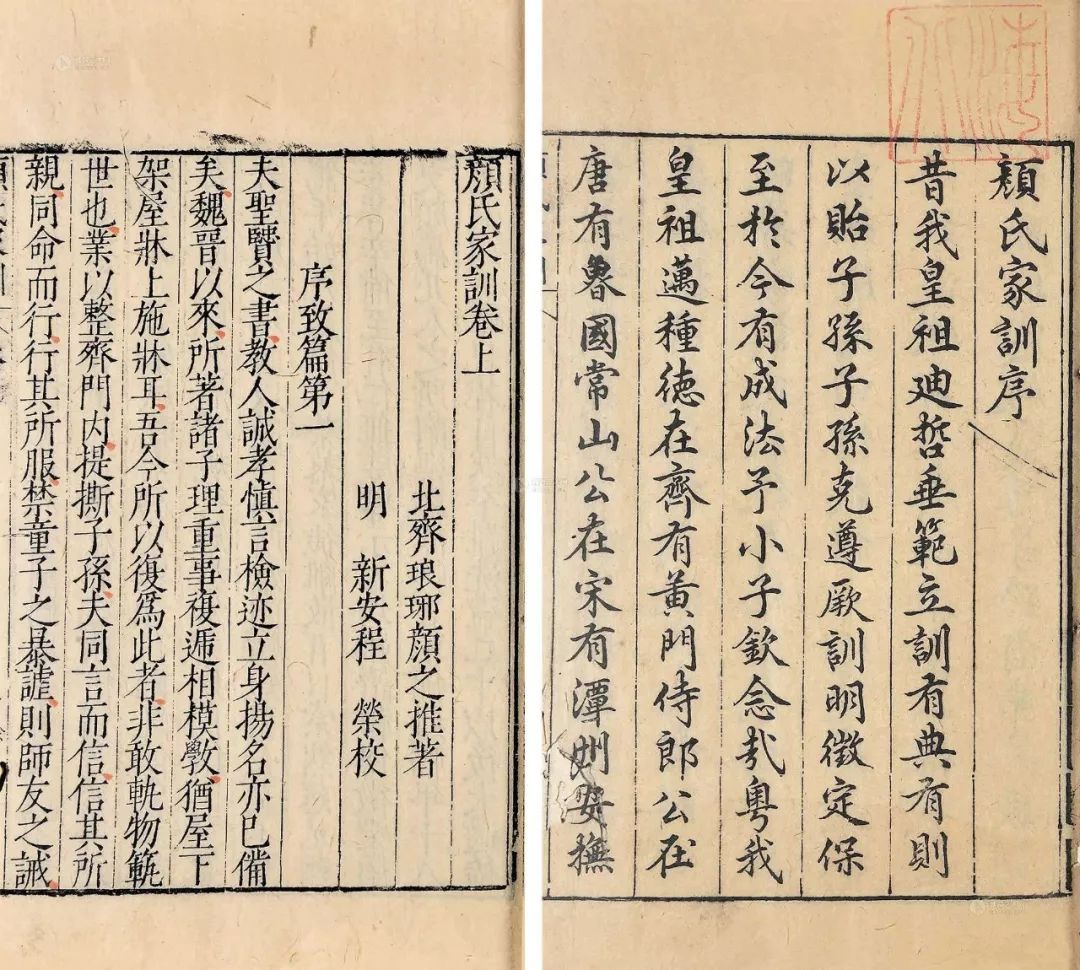 顏氏家訓序
昔我皇祖廸哲垂範立訓有典有則
以貽子孫子孫克遵厥訓明徵定保
至於今有成法予小子欽念哉粵我
皇祖邁種徳在齊有黃門侍郎公在
唐有魯國常山公在宋有潭州安撫
顏氏家訓卷上
北齊琅琊顏之推著
明 新安程 榮校
序致篇第一
夫聖賢之書教人誠孝慎言檢迹立身揚名亦已備
矣魏晉以來所著諸子理重事複遞相模斆猶屋下
架屋牀上施牀耳吾今所以復爲此者非敢軌物範
世也業以整齊門内提撕子孫夫同言而信信其所
親同命而行行其所服禁童子之暴謔則師友之誡